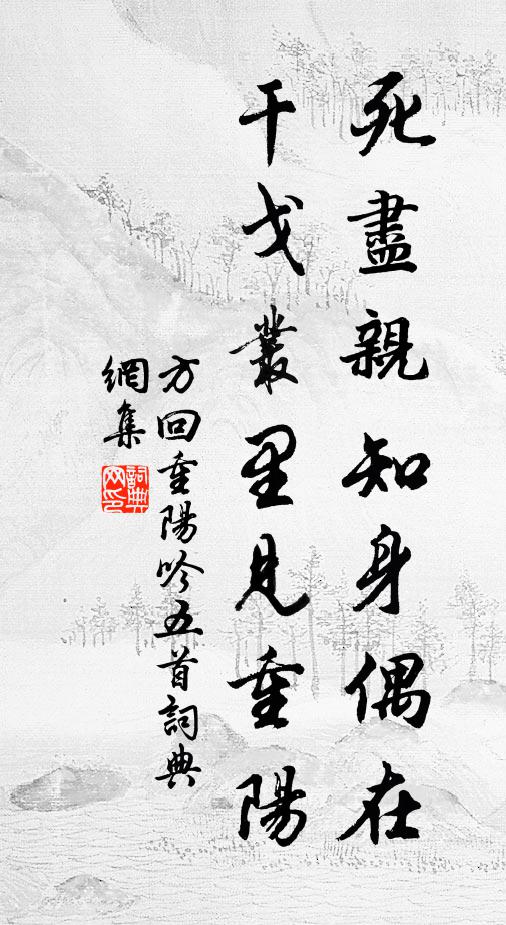 死盡親知身偶在
干戈叢里見重陽
方回重陽吟五首詞典
網集
詞典
网印